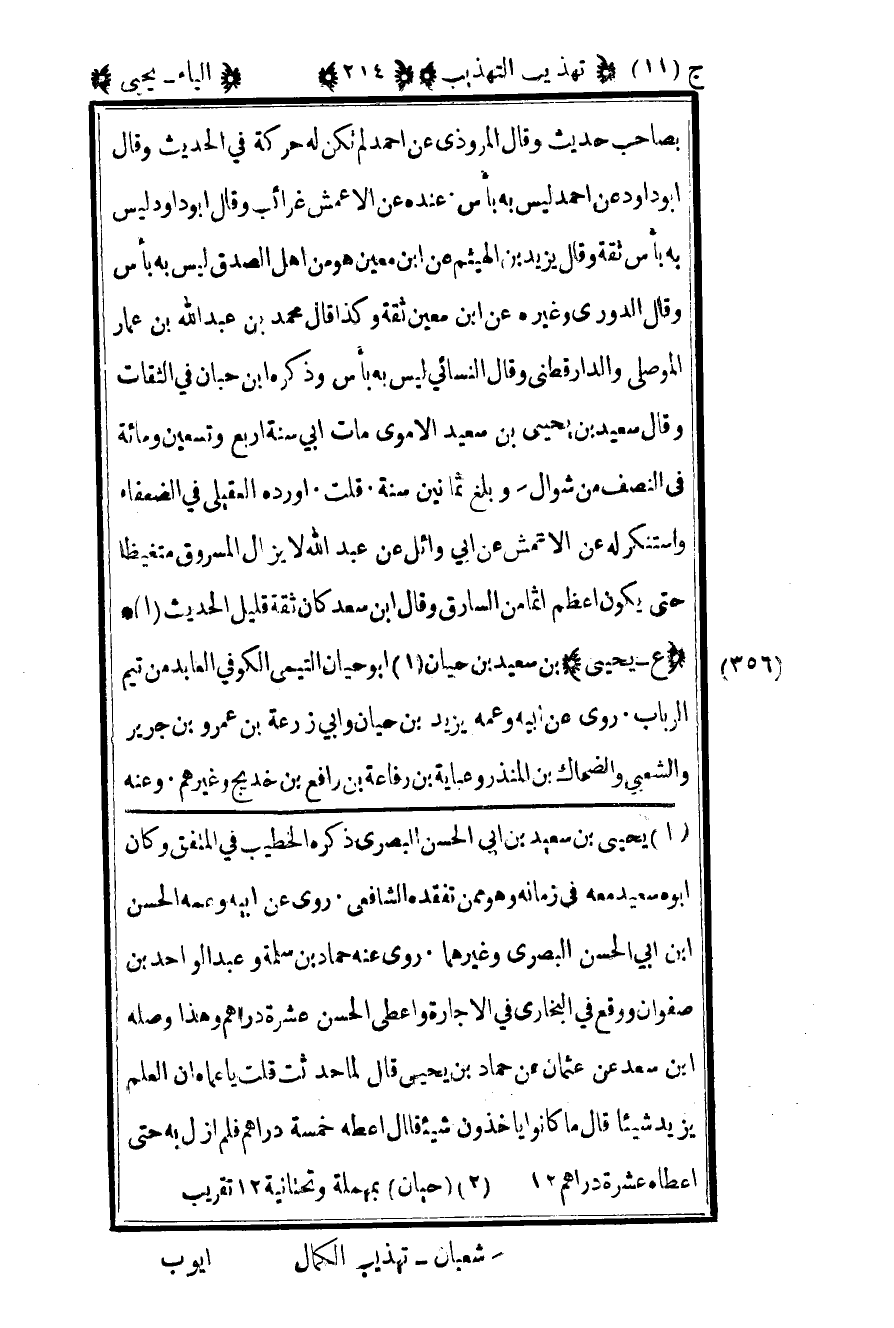 ج (١١) ﴿ تهذيب التهذيب ﴾ ﴿ ٢١٤ ﴾ ﴿ الياء ـ يحيى ﴾
بصاحب حديث وقال المروذى عن احمد لم تكن له حركة في الحديث وقال
ابو داود عن احمد ليس به بأس ٠ عنده عن الاعمش غرائب وقال ابو داود ليس
به بأس ثقة وقال يزيد بن الهيثم عن ابن معين هو من اهل الصدق ليس به بأس
وقال الدورى وغيره عن ابن معين ثقة وكذا قال محمد بن عبدالله بن عمار
الموصلى والدارقطنى وقال النسائي ليس به بأس وذكره ابن حبان في الثقات
وقال سعيد بن يحيى بن سعيد الاموى مات ابي سنة اربع وتسعين ومائة
فى النصف من شوال ـ وبلغ ثمانين سنة ٠ قلت ٠ اورده العقيلى في الضعفاء
واستنكر له عن الاعمش عن ابي وائل عن عبد الله لا يزال المسروق متغيظا
حتى يكون اعظم اثما من السارق وقال ابن سعد كان ثقة قليل الحديث (١) *
﴿ ع ـ يحيى ﴾ بن سعيد بن حيان (١) ابو حيان التيمى الكوفي العابد من تيم
(٣٥٦)
الرباب ٠ روى عن ابيه وعمه يزيد بن حيان وابي زرعة بن عمرو بن جرير
والشعبي والضحاك بن المنذر وعباية بن رفاعة بن رافع بن خديج وغيرهم ٠ وعنه
(١) يحيى بن سعيد بن ابي الحسن البصرى ذكره الخطيب في المتفق وكان
ابوه سعيد معه في زمانه وهو ممن تفقده الشافعى ٠ روى عن ابيه وعمه الحسن
ابن ابي الحسن البصرى وغيرهما ٠ روى عنه حماد بن سلمة و عبدالواحد بن
صفوان ووقع في البخارى في الاجارة واعطى الحسن عشرة دراهم وهذا وصله
ابن سعد عن عثمان عن حماد بن يحيى قال لما حدثت قلت يا عماه ان العلم
يزيد شيئا قال ما كانوا ياخذون شيئ قال اعطه خمسة دراهم فلم ازل به حتى
اعطاه عشرة دراهم ١٢ (٢) (حيان) بمهملة وتحتانية ١٢ تقريب
ـ شعبان ـ تهذيب الكمال ايوب